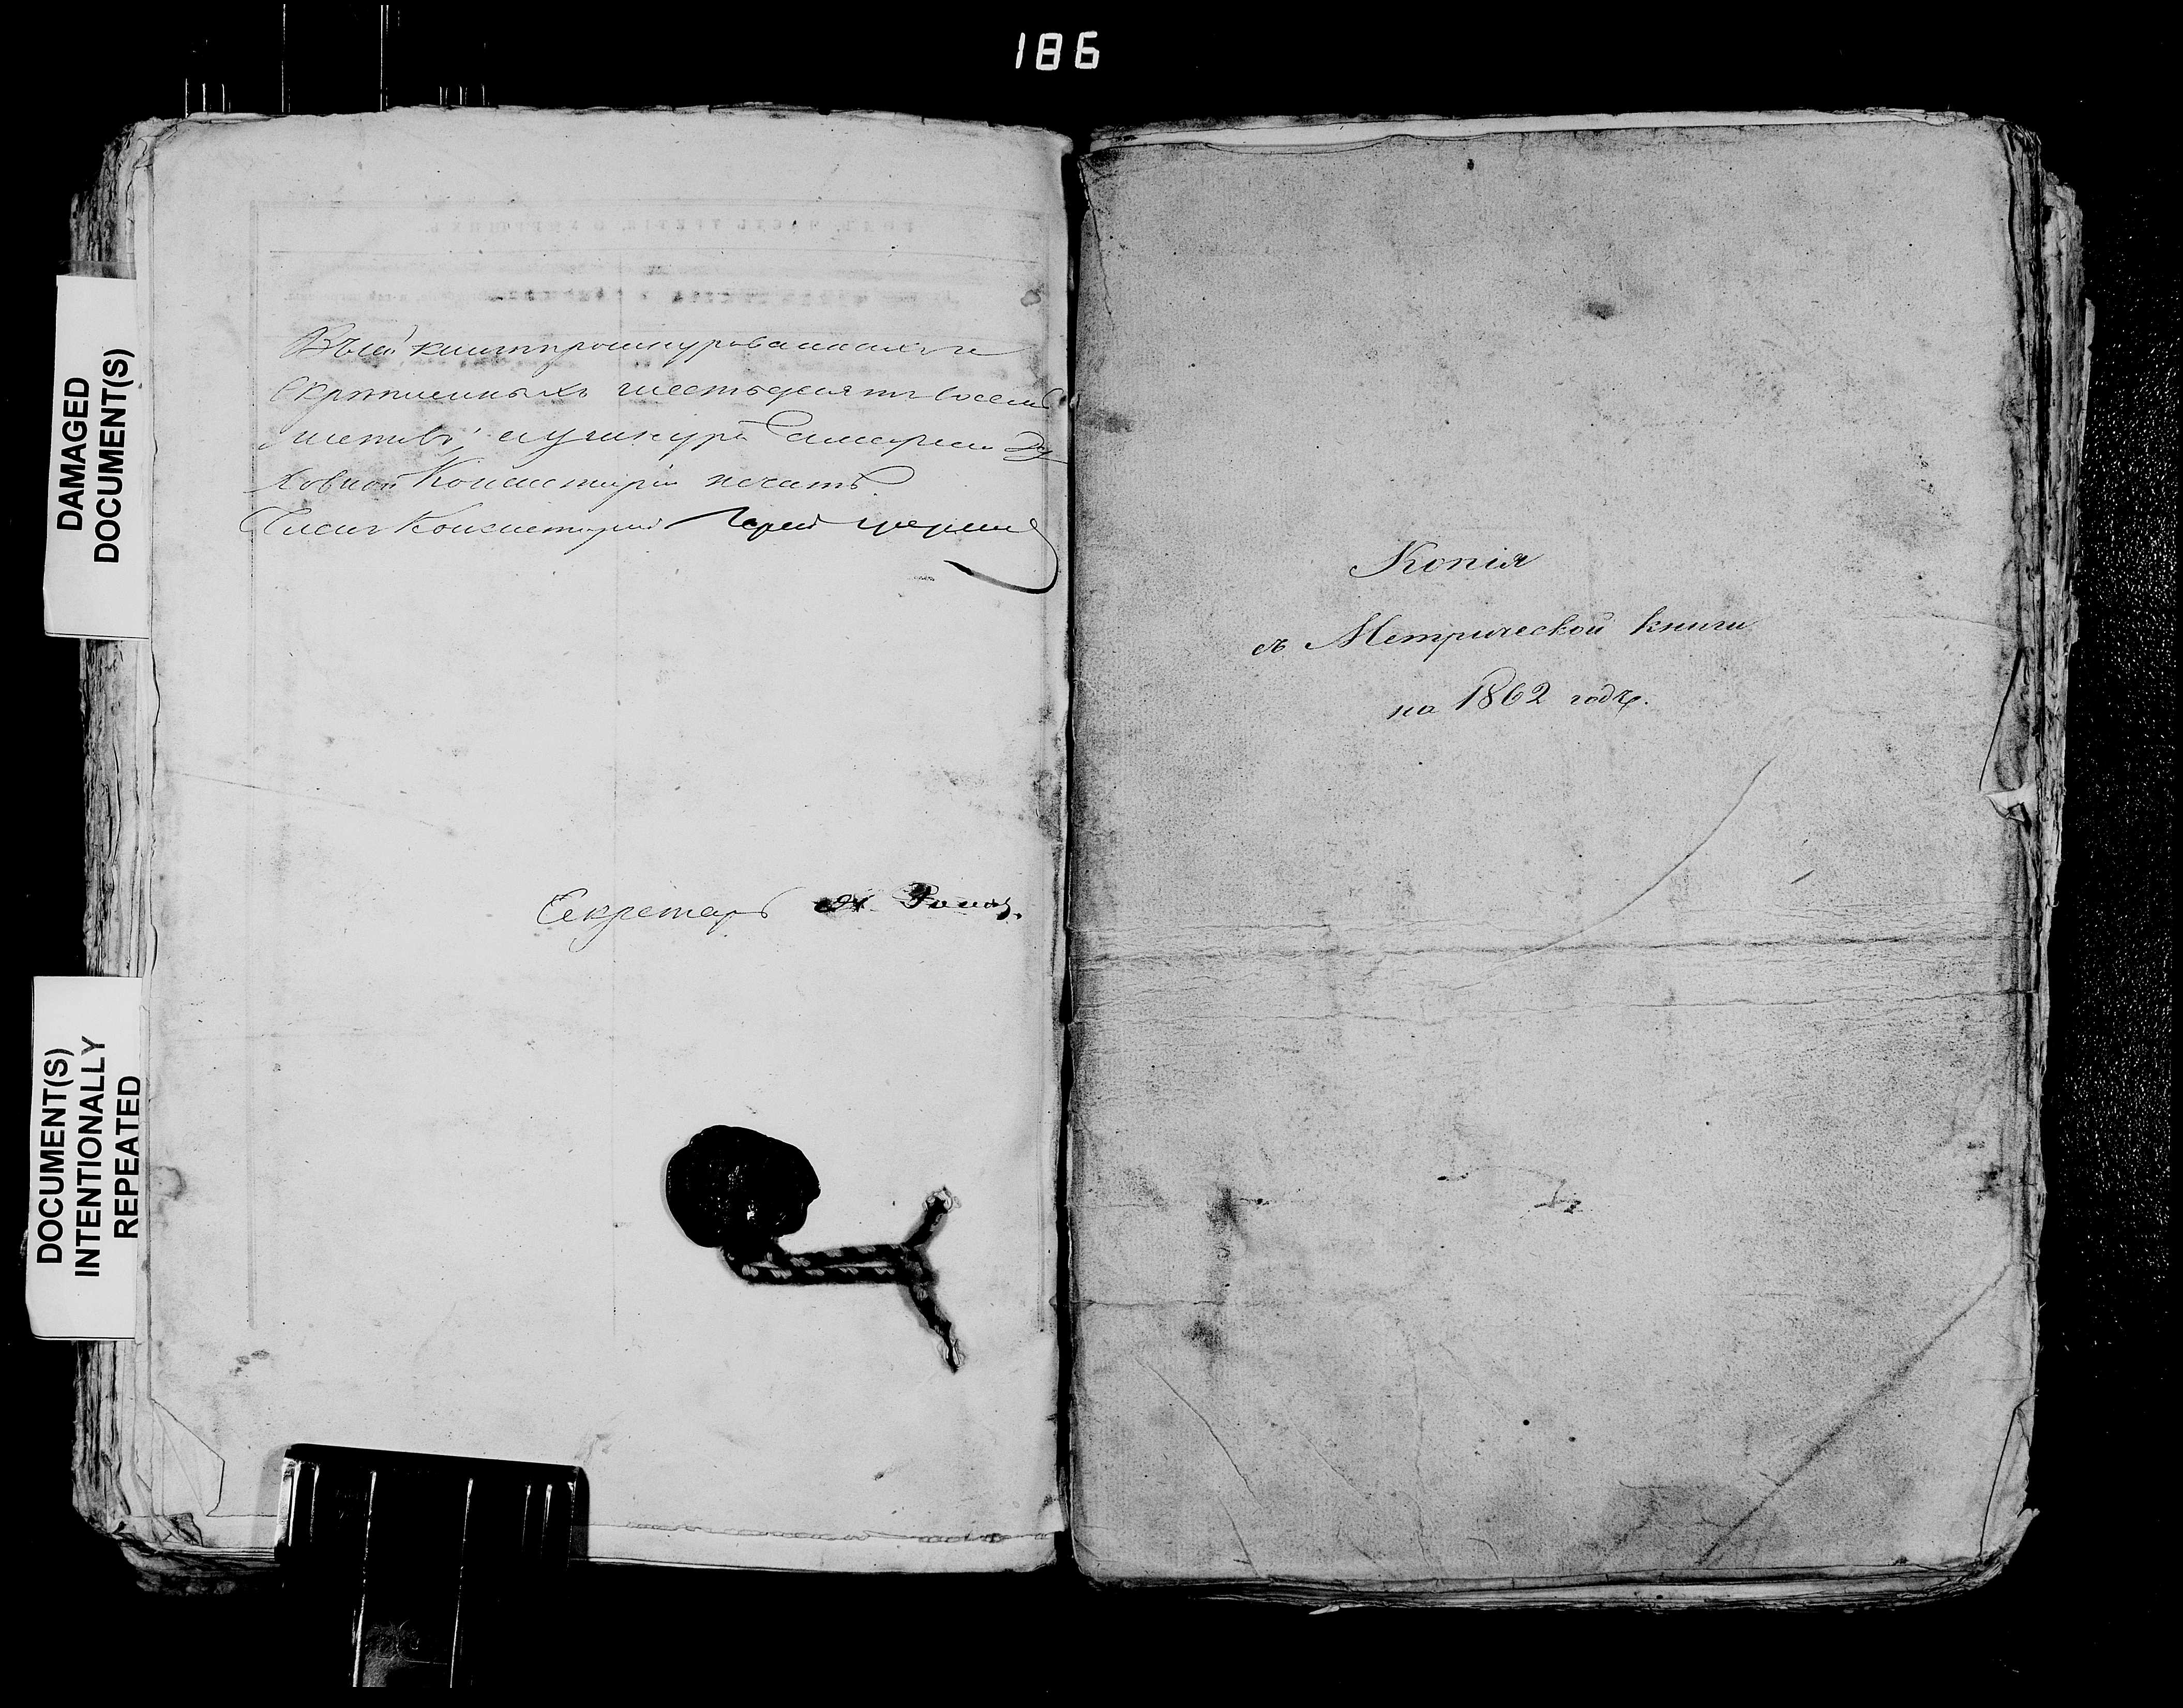 186
DAMAGED
DOCUMENT(S)
DOCUMENT(S)
INTENTIONALLY
REPEATED
Въ сей книг прошнурованныхъ и
скрепленныхъ шестьдесятъ восемь
листовъ, у шнура Самарской Ду
ховной Консисторіи печать.
Членъ Консисторіи Іерей
Секретарь
Копія
съ Метрической книги
на 1862 годъ.